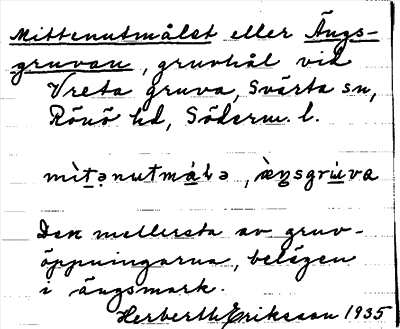 Mittenutmålet eller Ängs-
gruvan, gruvhål vid
Vreta gruva, Svärta sn,
Rönö hd, Söderm. l.
mìtənutmálə, æ̀ŋsgrúva
Den mellersta av gruv-
öppningarna, belägen
i ängsmark.
Herberth Eriksson 1935